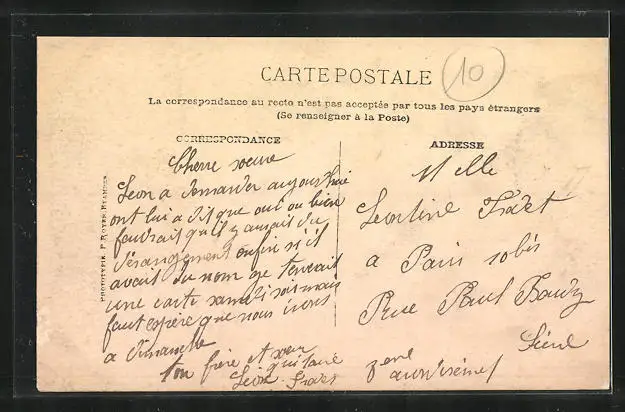 CARTE POSTALE
10
La correspondance au recto n'est pas acceptée par tous les pays étrangers
(Se renseigner à la Poste)
CORRESPONDANCE
Cherre soeur
Leon a demander aujourhui
ont lui a dit que oui ou bien
faudrait qu'il y aurait du
dérangement enfin si il
avait du nom ge tenverait
une carte samedi soir mais
faut espère que nous irons
a Dimanche
ton frère et soeur
qui
Léon
ADRESSE
Melle
Leontine
a Paris
Rue Paul
Seine
PHOTOTYPIE. P. ROYER, ETAMPES